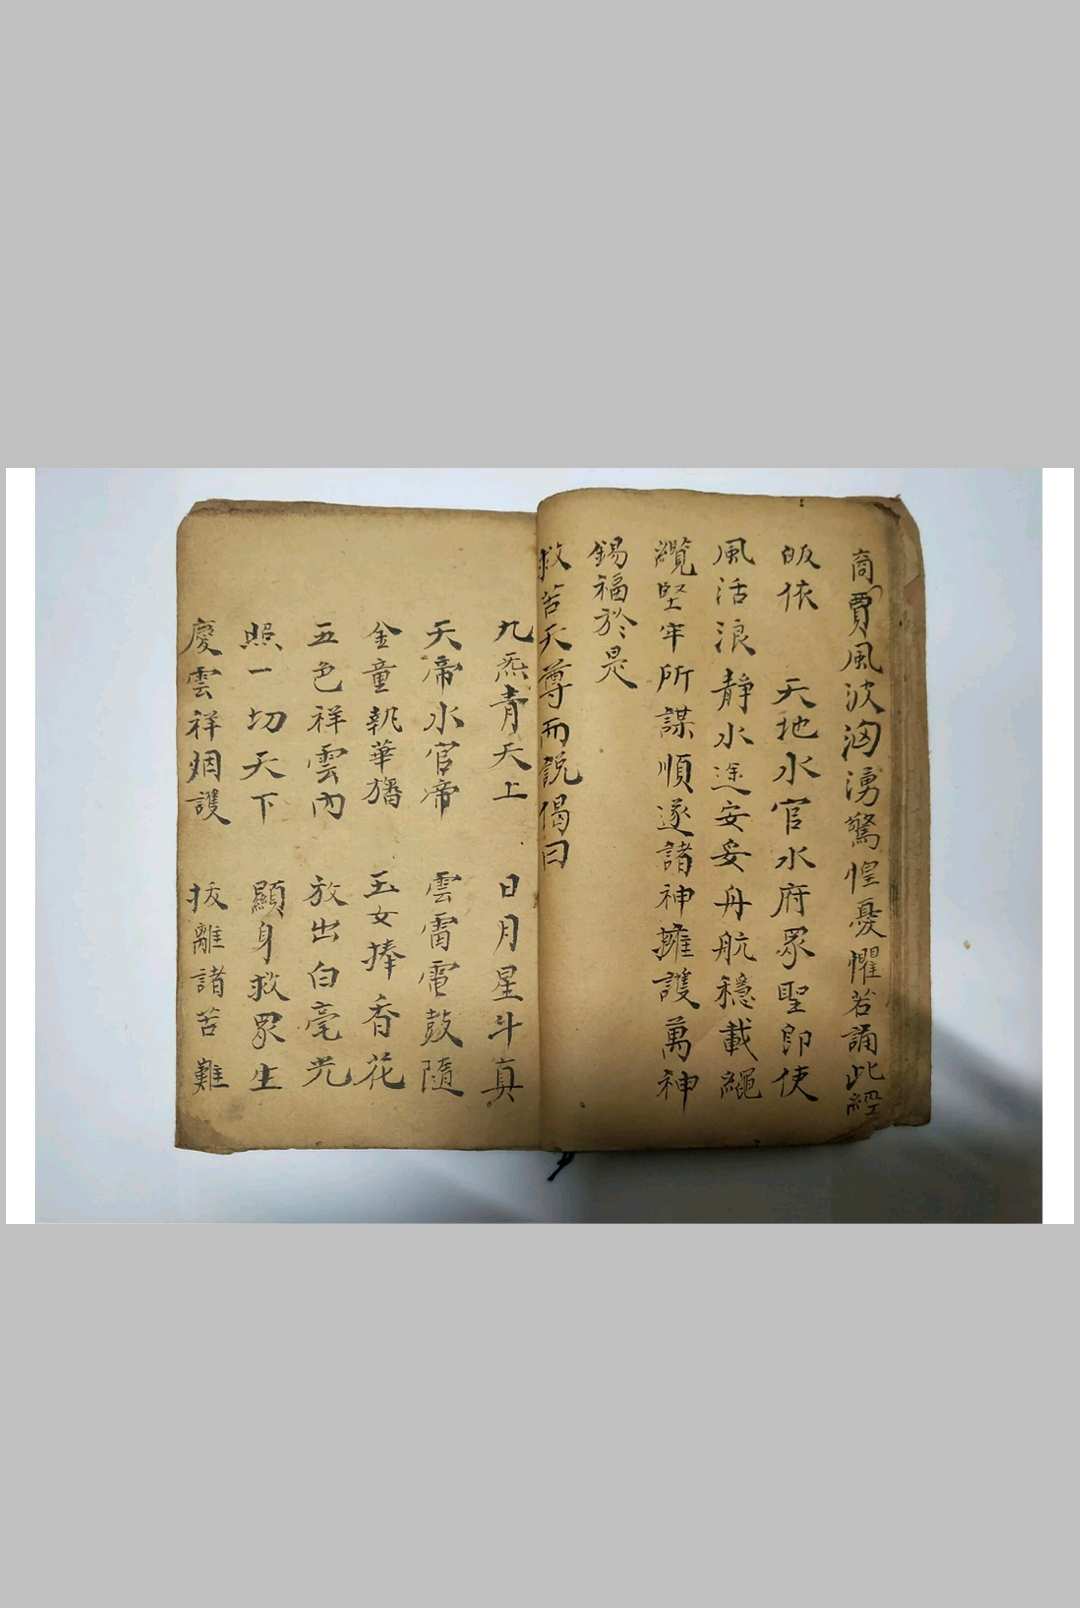 商賈風波洶湧驚惶憂懼若誦此經
皈依 天地水官水府眾聖即使
風活浪靜水途安妥舟航穩載繩
纜堅牢所謀順遂諸神擁護萬神
錫福於是
救苦天尊而説偈曰
九炁青天上 日月星斗真
天帝水官帝 雲雷電鼓隨
金童執華旛 玉女捧香花
五色祥雲內 放出白毫光
照一切天下 顯身救眾生
慶雲祥烟護 拔離諸苦難